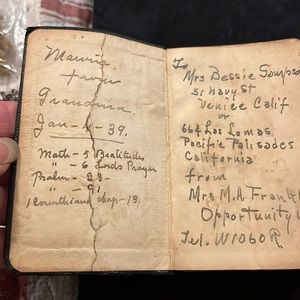 from
Grandma.
Jan-4-39.
Math-5 Beatitudes
" -6 Lords Prayer
Psalm-23-
" -91.
1 Corinthians Chap-13.
To
Mrs Bessie
51 Navy St
Venice Calif
or
664 Las Lomas
Pacific Palisades
California
from
Mrs M.A. Frank
Opportunity
Tel. W1060R